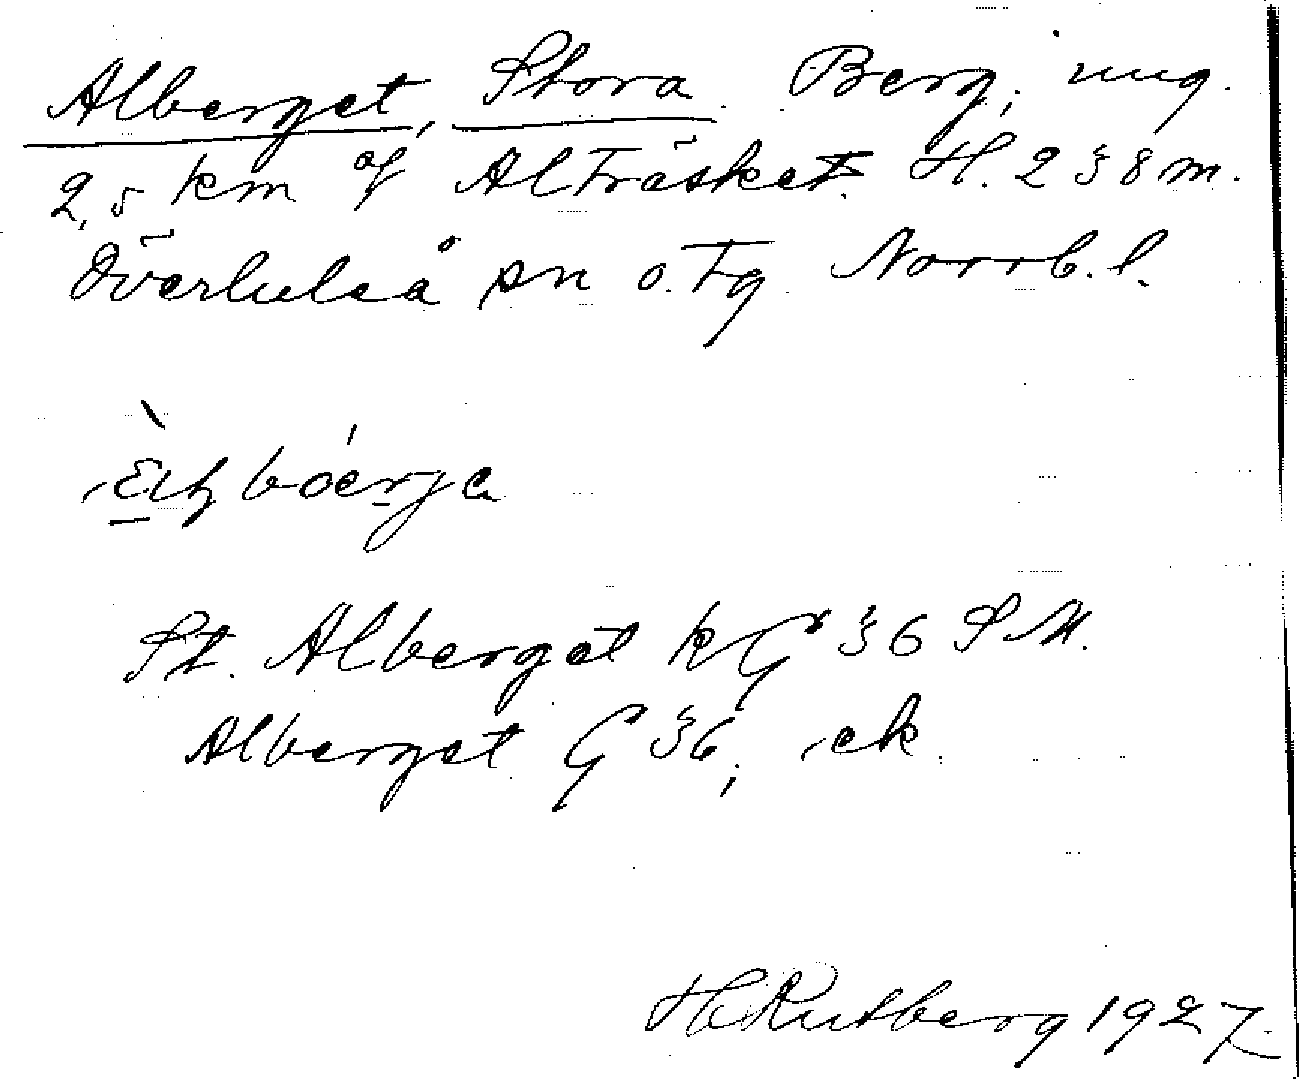 Alberget, Stora. Berg, ung.
2,5 km af Alträsket. H. 238 m.
Överluleå sn o. tg. Norrb. l.
St. Alberget kG 36 SM.
Alberget G 36, ek.
H Rutberg 1927.